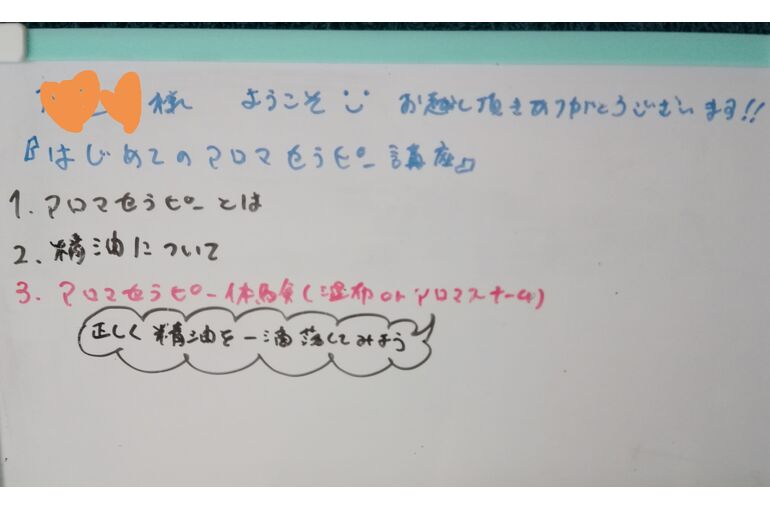 様 ようこそ お越し頂きありがとうございます!!
『はじめてのアロマセラピー講座』
1. アロマセラピーとは
2. 精油について
3. アロマセラピー体験(湿布 or アロマスチーム)
正しく精油を一滴落してみよう